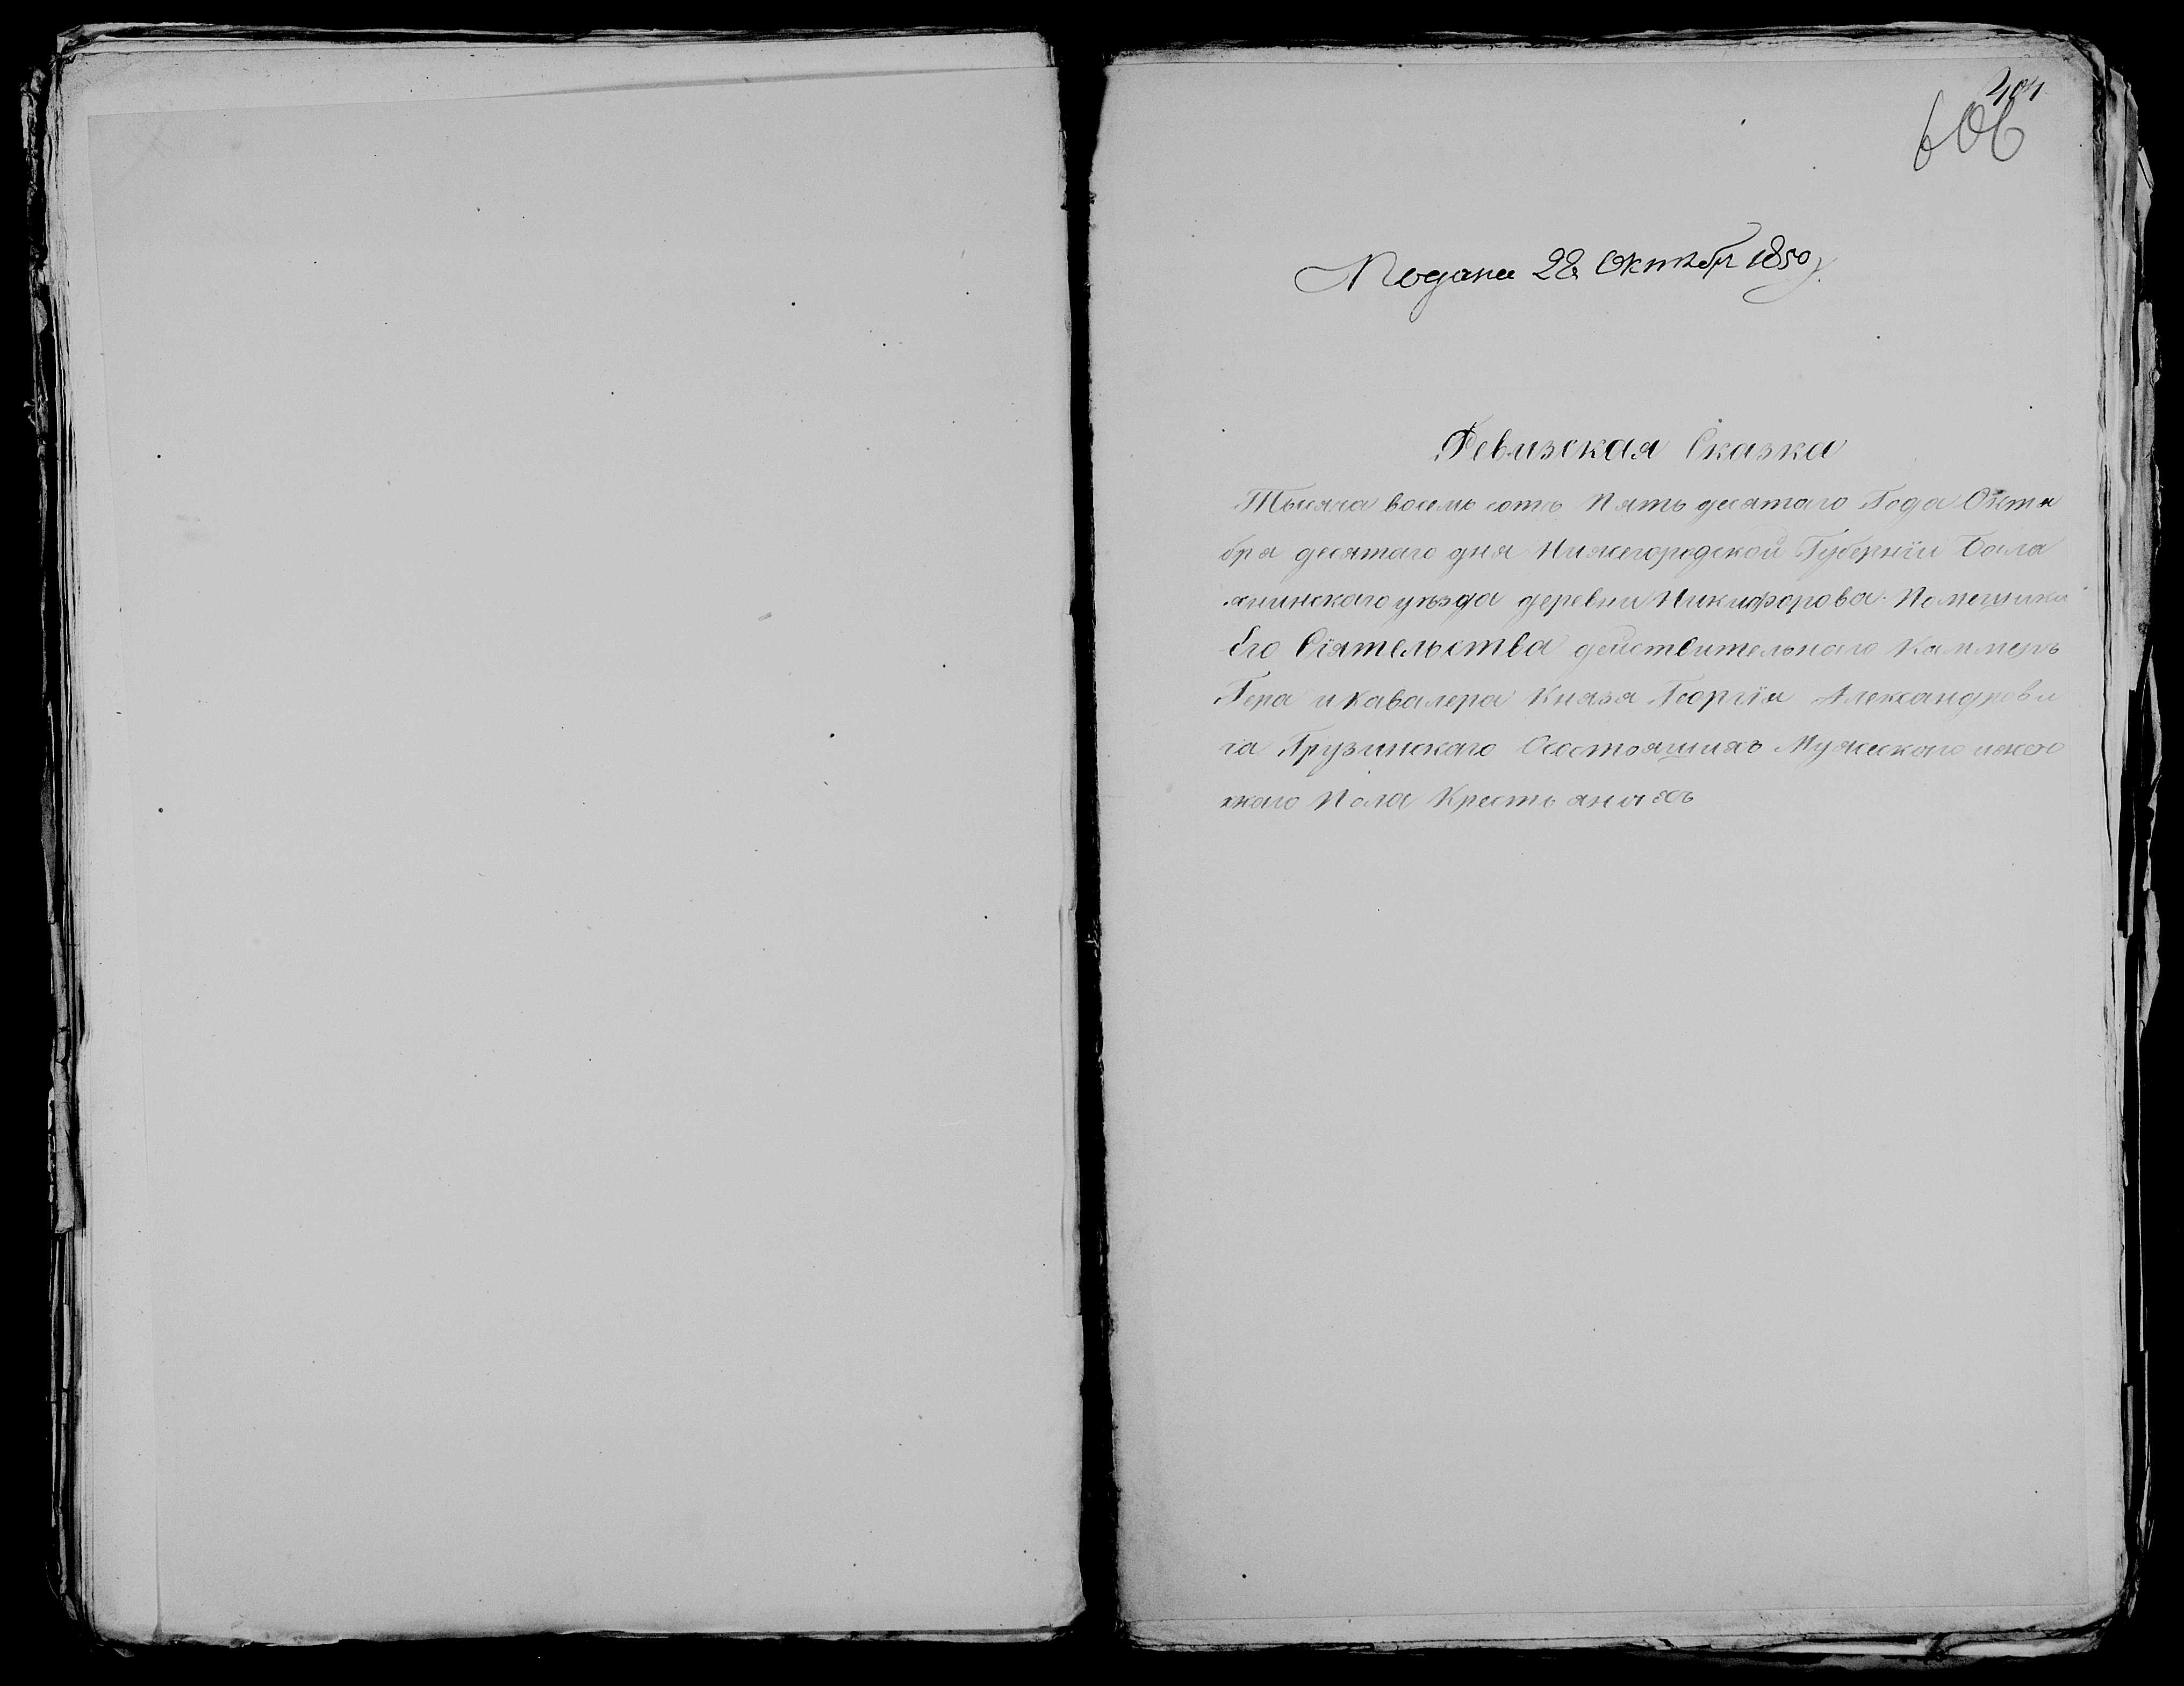 404
606
Подана 28 Октября 1850 г.
Ревизская Сказка
Тысяча восемь сотъ Пять десятаго Года Октя
бря десятаго дня Нижегородской Губернїи Бала
хнинскаго уѣзда деревни Никифорова Помещика
Его Сїятельства действительнаго Каммеръ
Гера и Кавалера Князя Георгїя Александрови
ча Грузинскаго Осостоящихъ Мужескаго и жен
скаго Пола Крестьянахъ